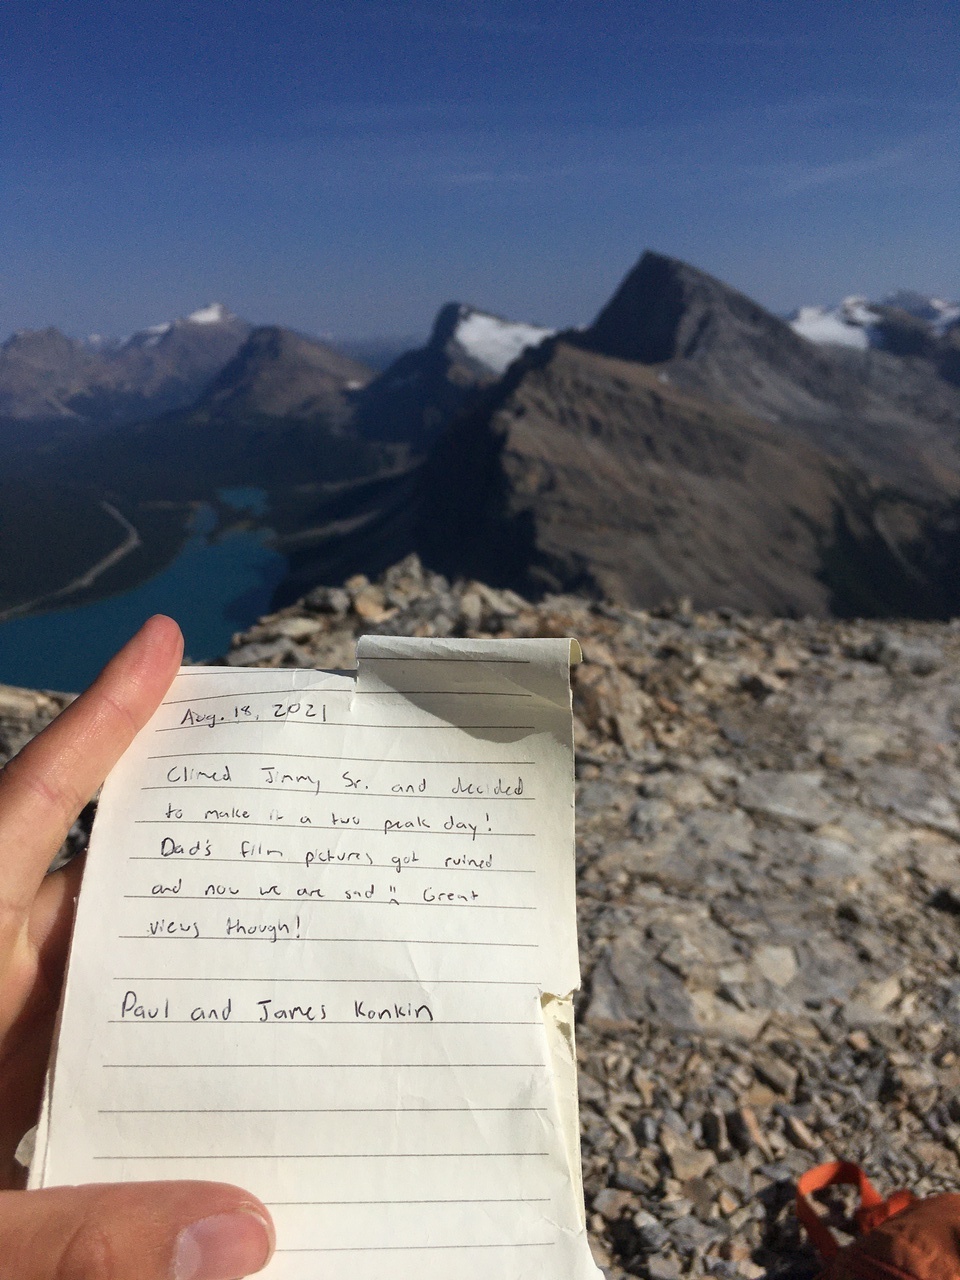 Aug. 18, 2021
Climed Jimmy Sr. and decided
to make it a two peak day!
Dad's film pictures got ruined
and now we are sad :( Great
views though!
Paul and James Konkin